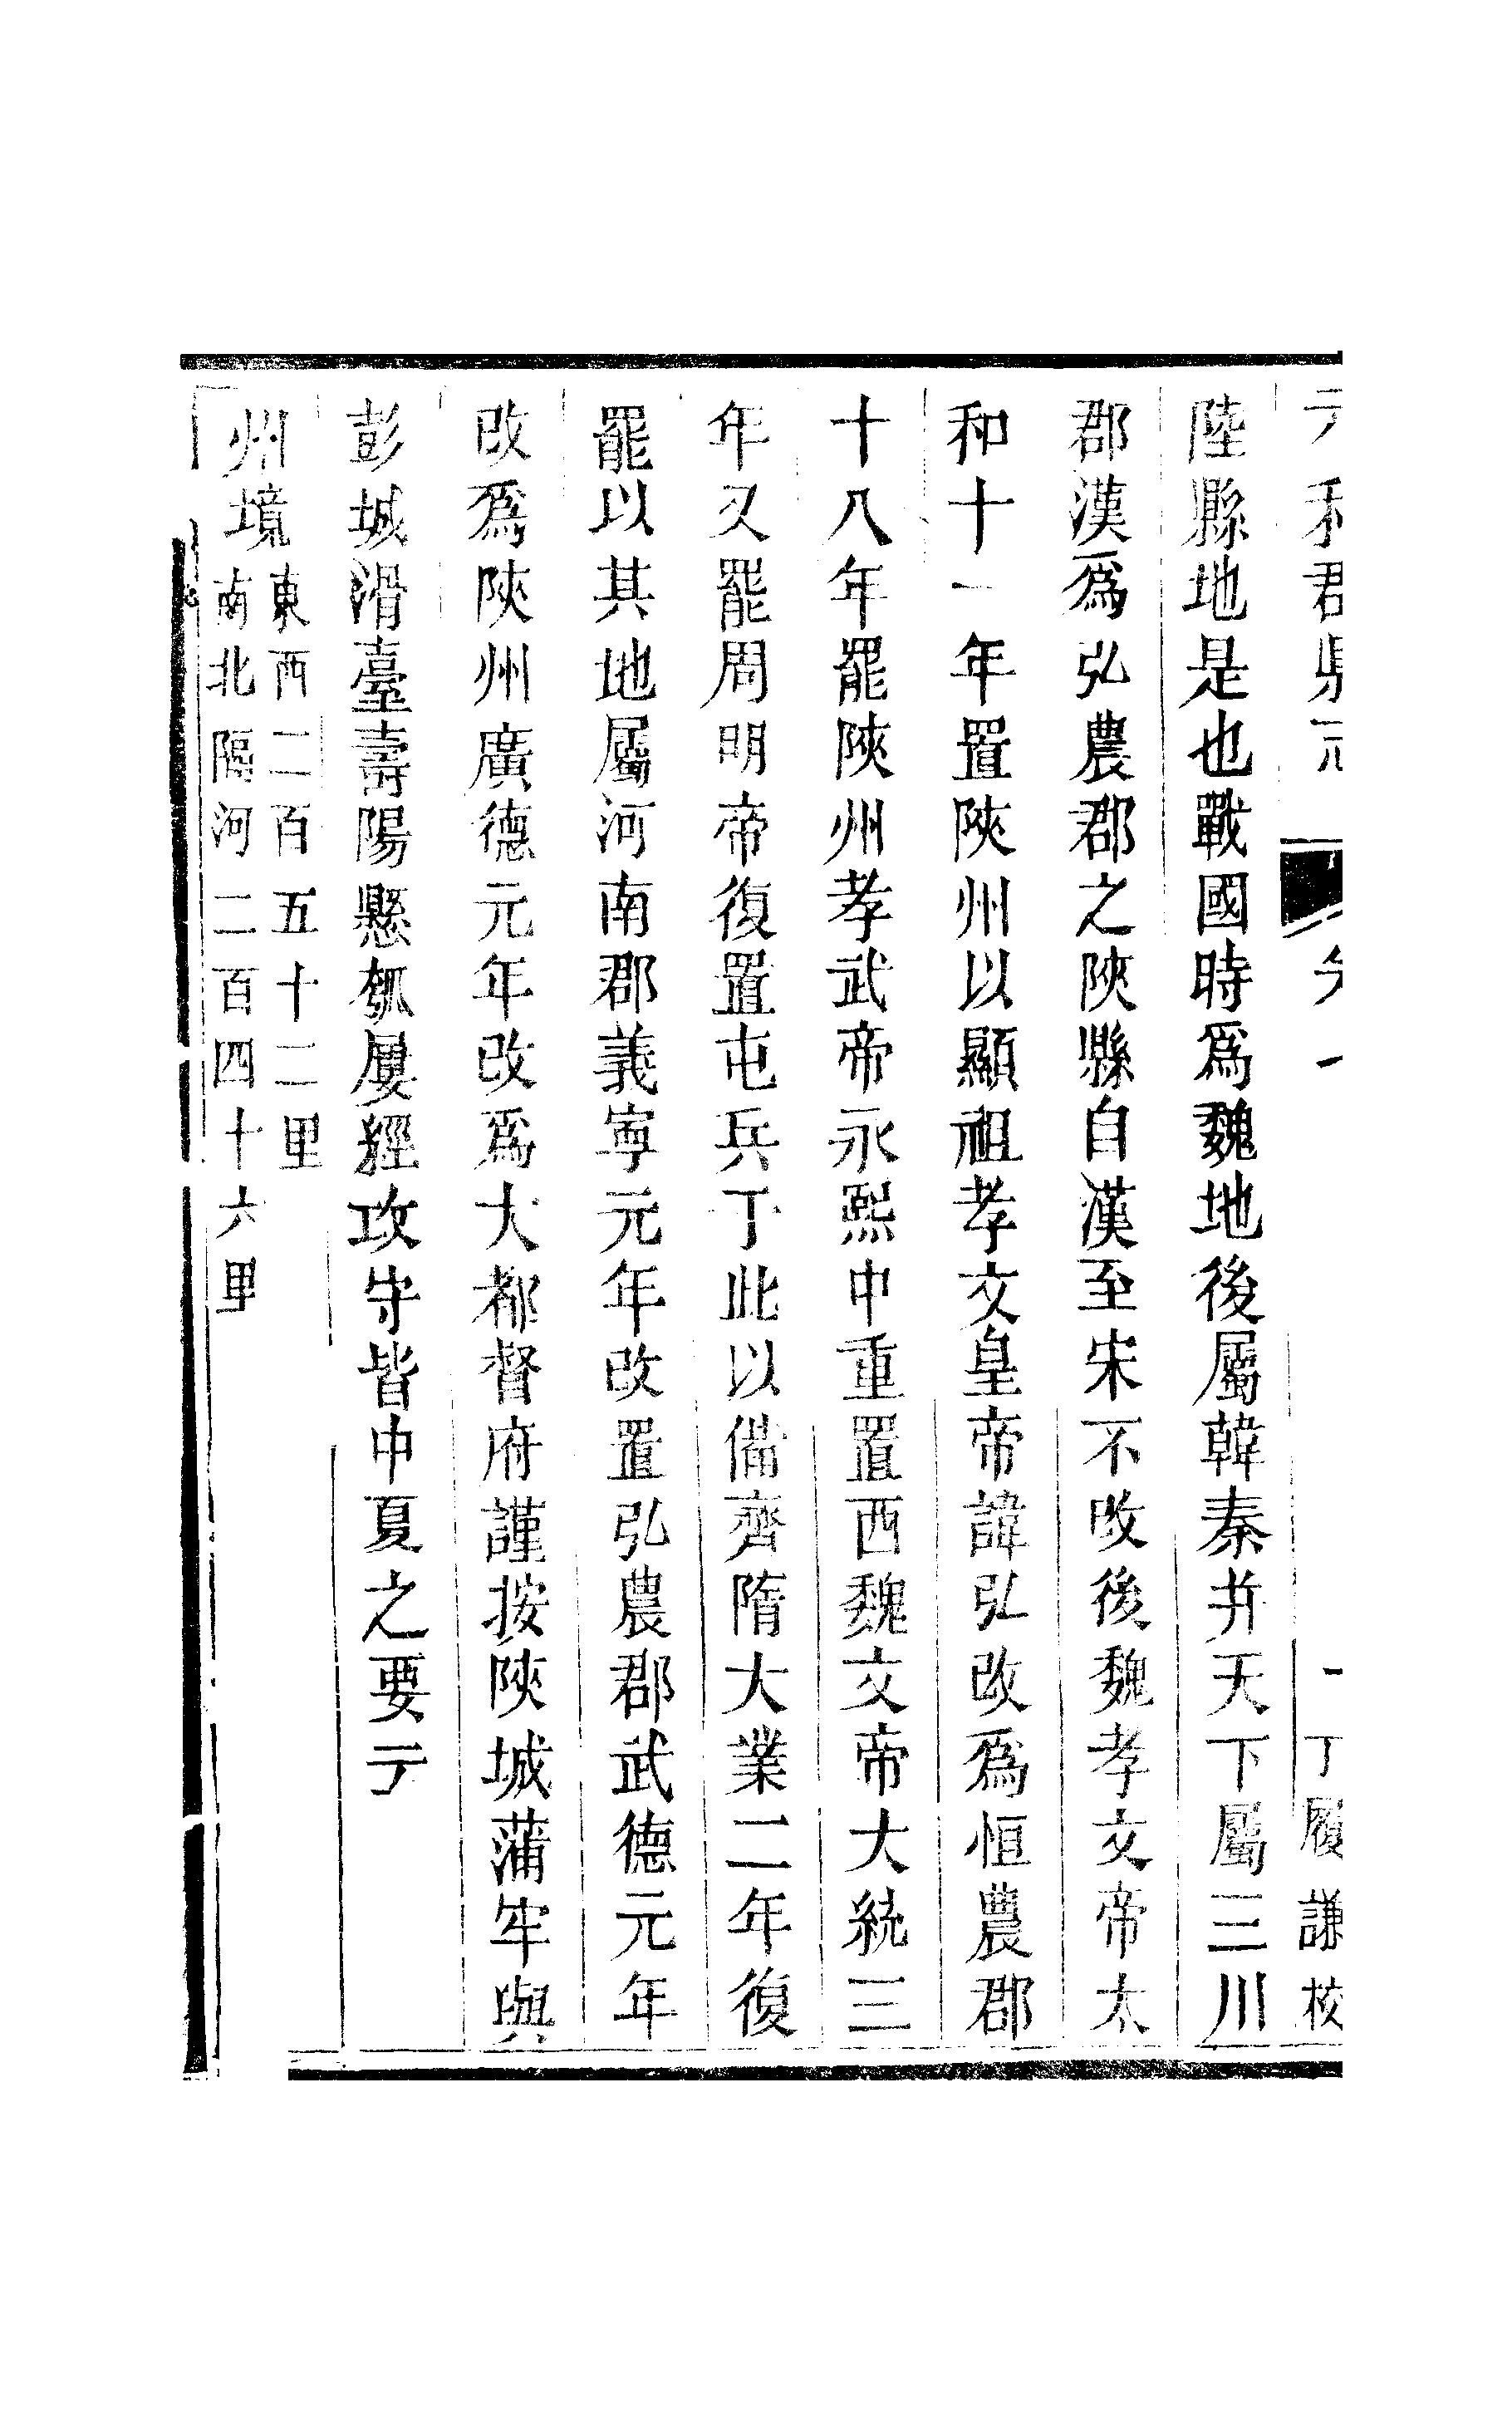 陸縣地是也戰國時爲魏地後屬韓秦并天下屬三川
郡漢爲弘農郡之陜縣自漢至宋不改後魏孝文帝太
和十一年置陜州以顯祖孝文皇帝諱弘改爲恒農郡
十八年罷陜州孝武帝永熙中重置西魏文帝大統三
年又罷周明帝復置屯兵于此以備齊隋大業二年復
罷以其地屬河南郡義寧元年改置弘農郡武德元年
改爲陜州廣德元年改爲大都督府謹按陜城蒲牢與
彭城滑臺壽陽懸瓠屢經攻守皆中夏之要云
州境
東西二百五十二里
南北隔河二百四十六里
丁履謙校